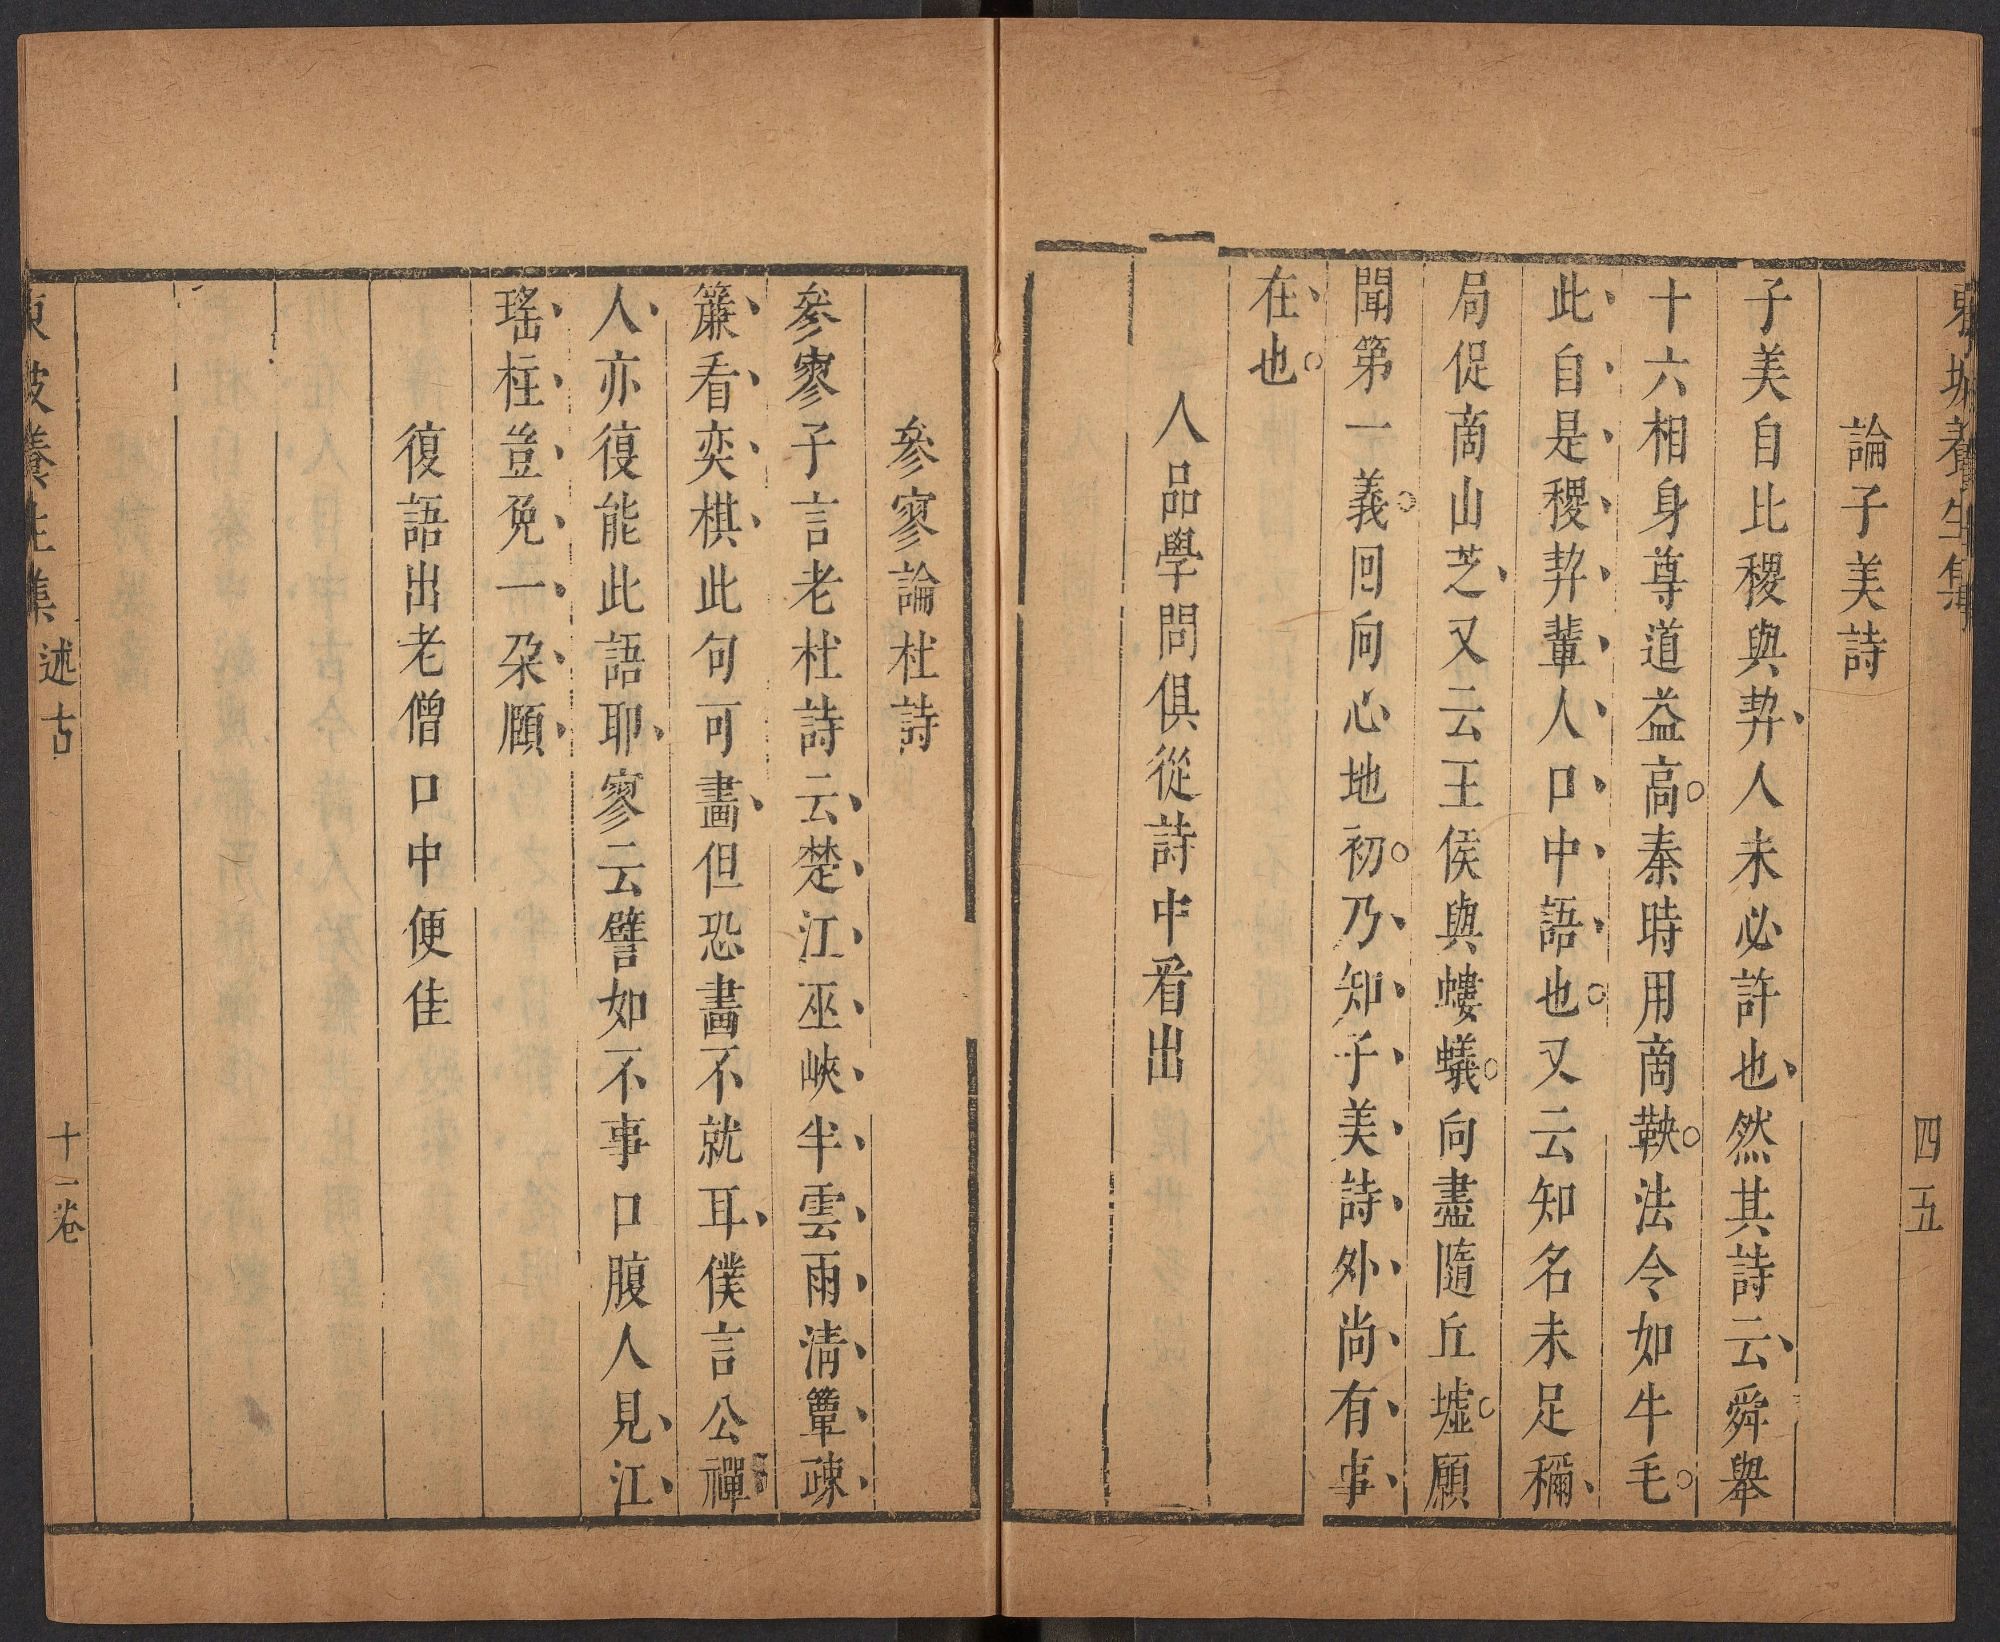 東坡養生集 四五
論子美詩
子美自比稷與契人未必許也然其詩云舜舉
十六相身尊道益高秦時用商鞅法令如牛毛
此自是稷契輩人口中語也又云知名未足稱
局促商山芝又云王侯與螻蟻向盡隨丘墟願
聞第一義回向心地初乃知子美詩外尚有事
在也
人品學問俱從詩中看出
參寥論杜詩
參寥子言老杜詩云楚江巫峽半雲雨清簟疎
簾看奕棋此句可畫但恐畫不就耳僕言公禪
人亦復能此語耶寥云譬如不事口腹人見江
瑤柱豈免一朵頤
復語出老僧口中便佳
東坡養生集 述古 十一卷